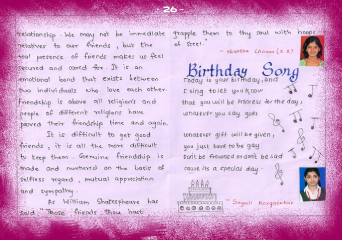 - 26 -
relationship. We may not be immediate
relatives to our friends, but the
presence of friends makes us feel
secured and cared for. It is an
emotional bond that exists between
two individuals who love each other.
Friendship is above all religions and
people of different religions have
proved their friendship time and again.
It is difficult to get good
friends, it is all the more difficult
to keep them. Genuine friendship is
made and nurtured on the basis of
selfless regard, mutual appreciation
and sympathy.
As William Shakespheare has
said, Those friends thou hast
grapple them to thy soul with hoops
of steel.
Birthday Song
Today is your birthday, and
I sing to let you know
that you will be princess for the day,
whatever you say goes
whatever gift will be given,
you just have to be gay
Don't be frowned or don't be sad
cause its a special day.
- Sayali